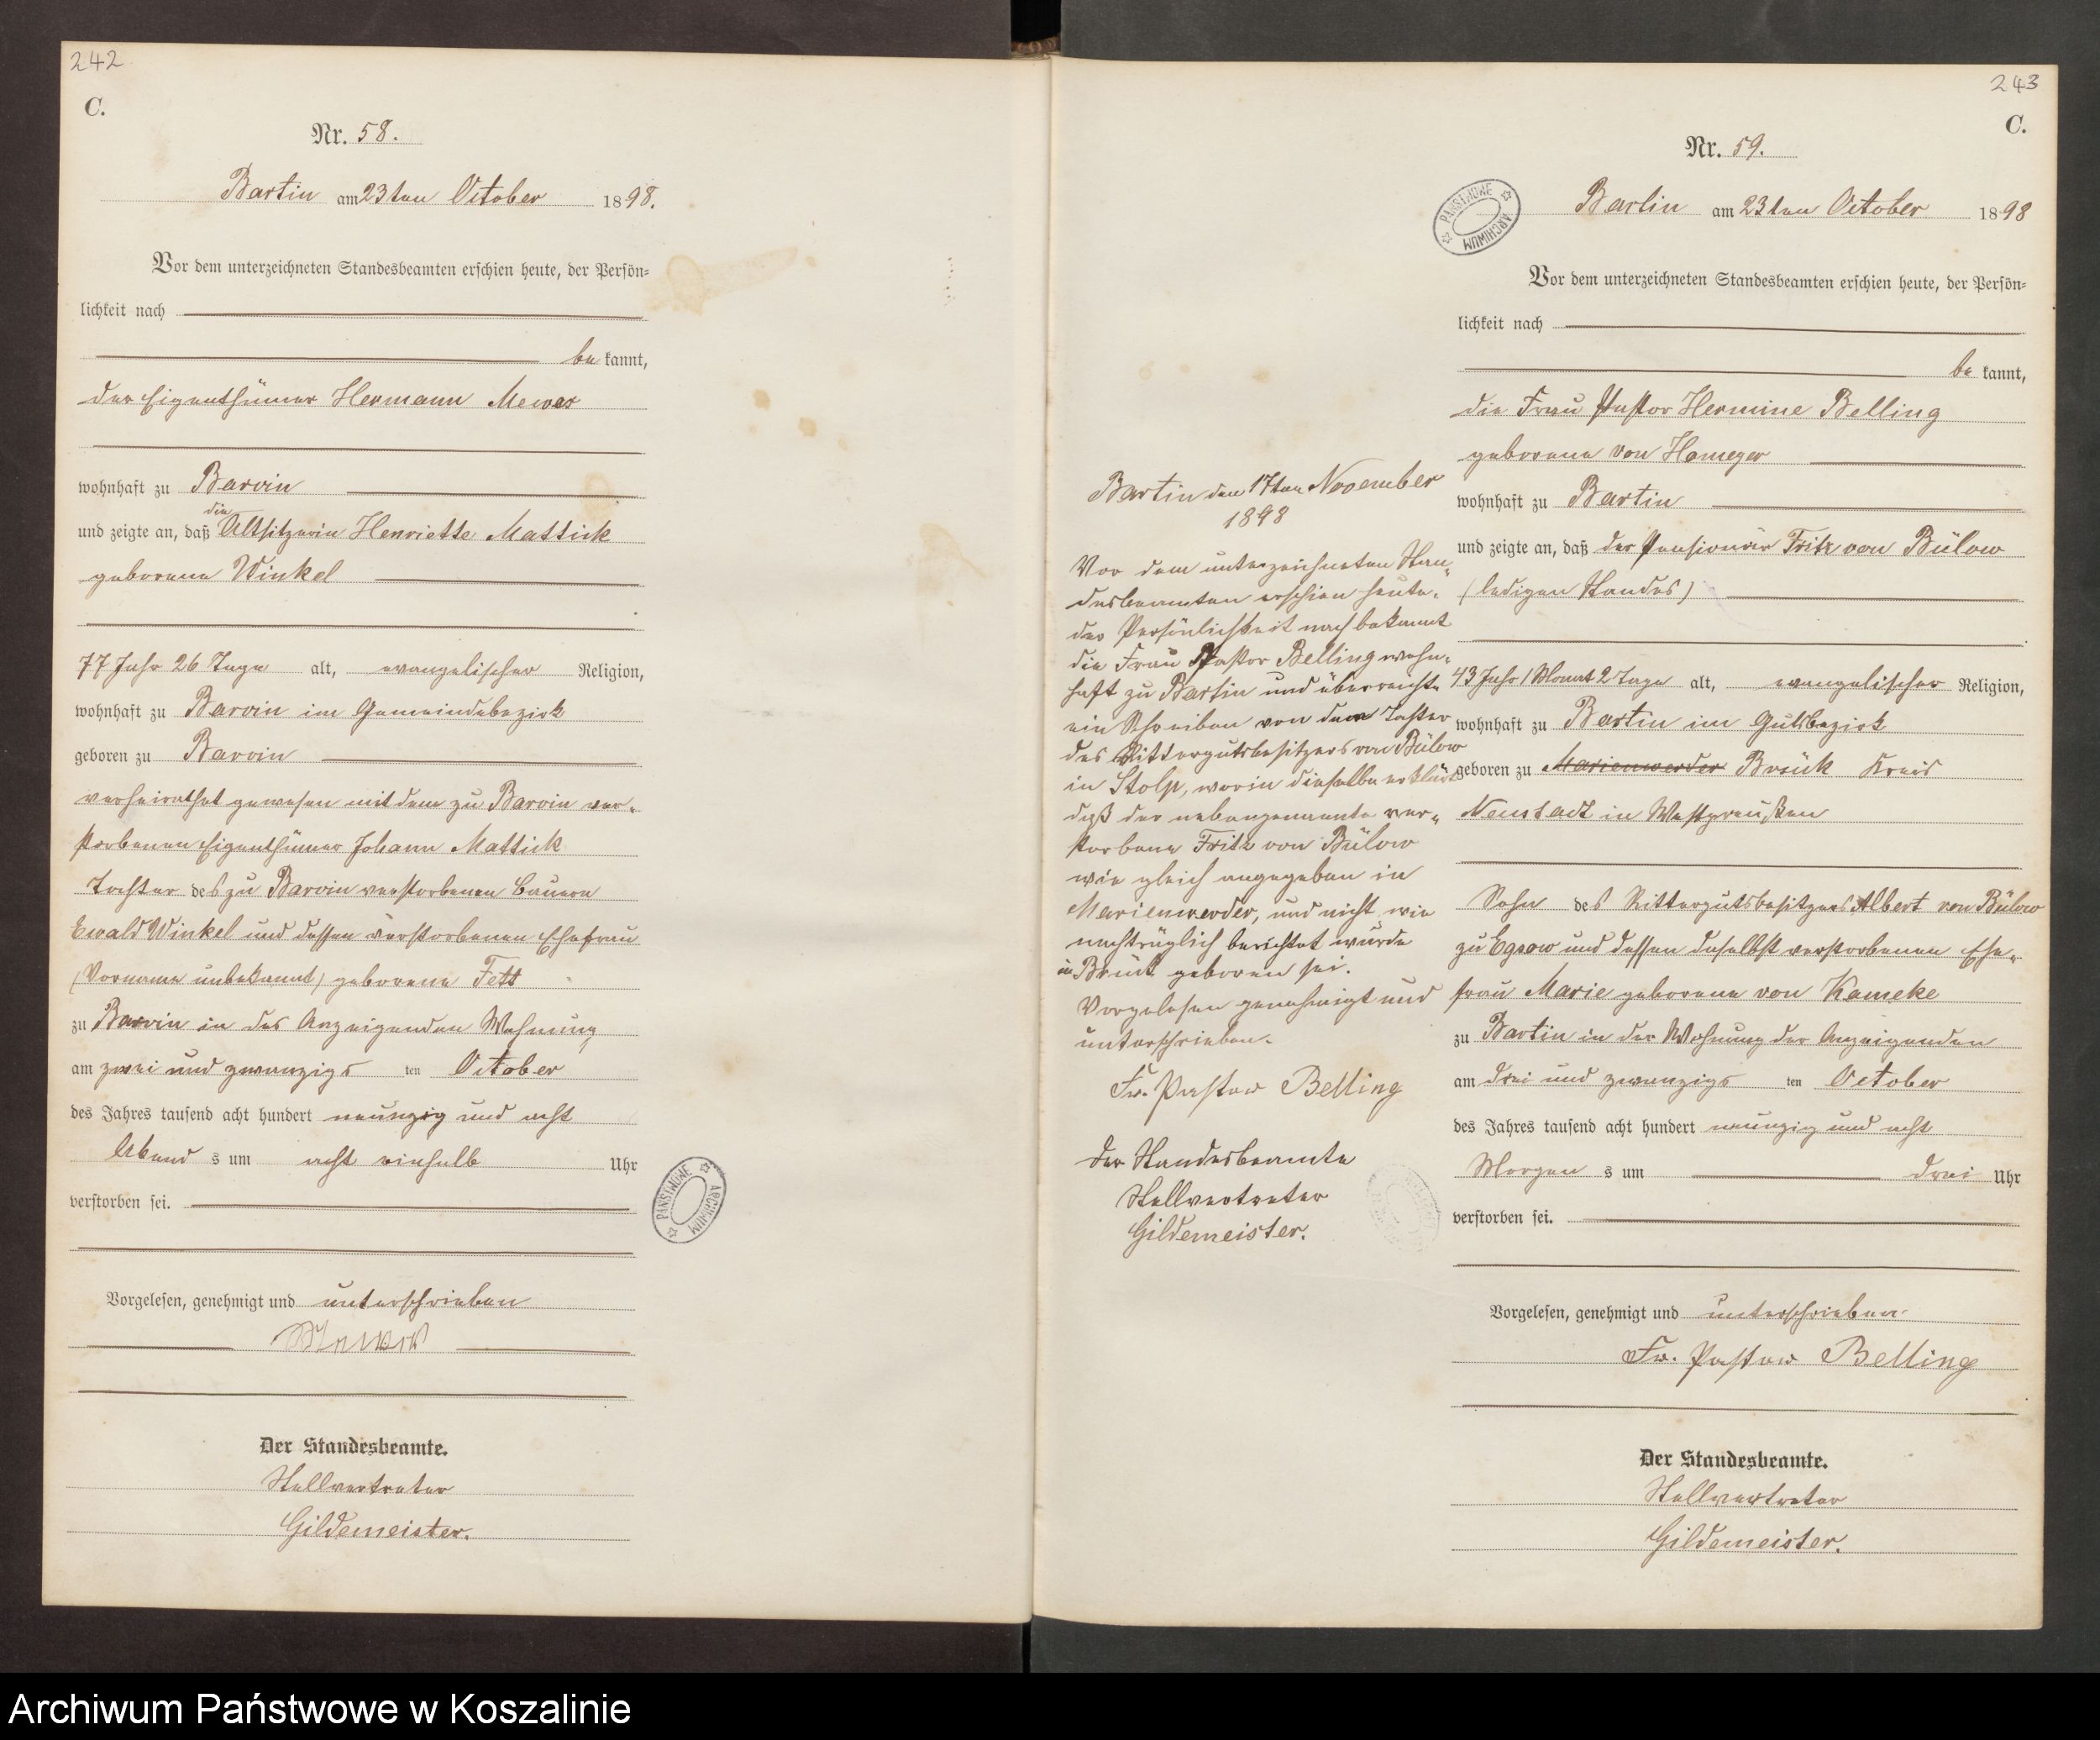 242
C.
Nr. 58.
Bartin am 23ten October 1898.
Vor dem unterzeichneten Standesbeamten erschien heute, der Persön-
lichkeit nach
be kannt,
der Eigenthümer Hermann Mewes
wohnhaft zu Barvin
und zeigte an, daß die Altsitzerin Henriette Mattick
geborene Winkel
77 Jahr 26 Tage alt, evangelischer Religion,
wohnhaft zu Barvin im Gemeindebezirk
geboren zu Barvin
verheirathet gewesen mit dem zu Barvin ver-
storbenen Eigenthümer Johann Mattick
Tochter des zu Barvin verstorbenen Bauern
Ewald Winkel und dessen verstorbenen Ehefrau
(Vorname unbekannt) geborene Fett
zu Barvin in des Anzeigenden Wohnung
am zwei und zwanzigs ten October
des Jahres tausend acht hundert neunzig und acht
Abend s um acht einhalb Uhr
verstorben sei.
Vorgelesen, genehmigt und unterschrieben
Mewes
Der Standesbeamte.
Stellvertreter
Gildemeister.
PAŃSTWOWE ARCHIWUM
243
C.
Nr. 59.
PAŃSTWOWE ARCHIWUM
Bartin am 23ten October 1898
Vor dem unterzeichneten Standesbeamten erschien heute, der Persön-
lichkeit nach
be kannt,
die Frau Pastor Hermine Belling
geborene von Homeyer
wohnhaft zu Bartin
und zeigte an, daß der Pensionär Fritz von Bülow
(ledigen Standes)
43 Jahr 1 Monat 2 Tage alt, evangelischer Religion,
wohnhaft zu Bartin im Gutsbezirk
geboren zu Marienwerder Brück Kreis
Neustadt in Westpreußen
Sohn des Rittergutsbesitzers Albert von Bülow
zu Egsow und dessen daselbst verstorbenen Ehe-
frau Marie geborene von Kameke
zu Bartin in der Wohnung der Anzeigenden
am drei und zwanzigs ten October
des Jahres tausend acht hundert neunzig und acht
Morgen s um drei Uhr
verstorben sei.
Vorgelesen, genehmigt und unterschrieben.
Fr. Pastor Belling
Der Standesbeamte.
Stellvertreter
Gildemeister.
Bartin den 17ten November
1898
Vor dem unterzeichneten Stan-
desbeamten erschien heute,
der Persönlichkeit nach bekannt
die Frau Pastor Belling wohn-
haft zu Bartin und überreichte
ein Schreiben von der Tochter
des Rittergutsbesitzers von Bülow
in Stolp, worin dieselbe erklärt
daß der nebengenannte ver-
storbene Fritz von Bülow
wie gleich angegeben in
Marienwerder, und nicht wie
nachträglich berichtet wurde
in Brück geboren sei.
Vorgelesen genehmigt und
unterschrieben.
Fr. Pastor Belling
Der Standesbeamte
Stellvertreter
Gildemeister.
Archiwum Państwowe w Koszalinie